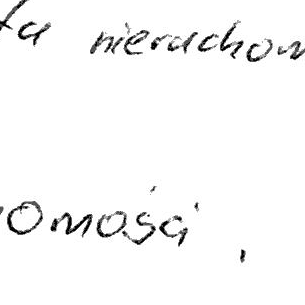 ta nieruchom
omości,